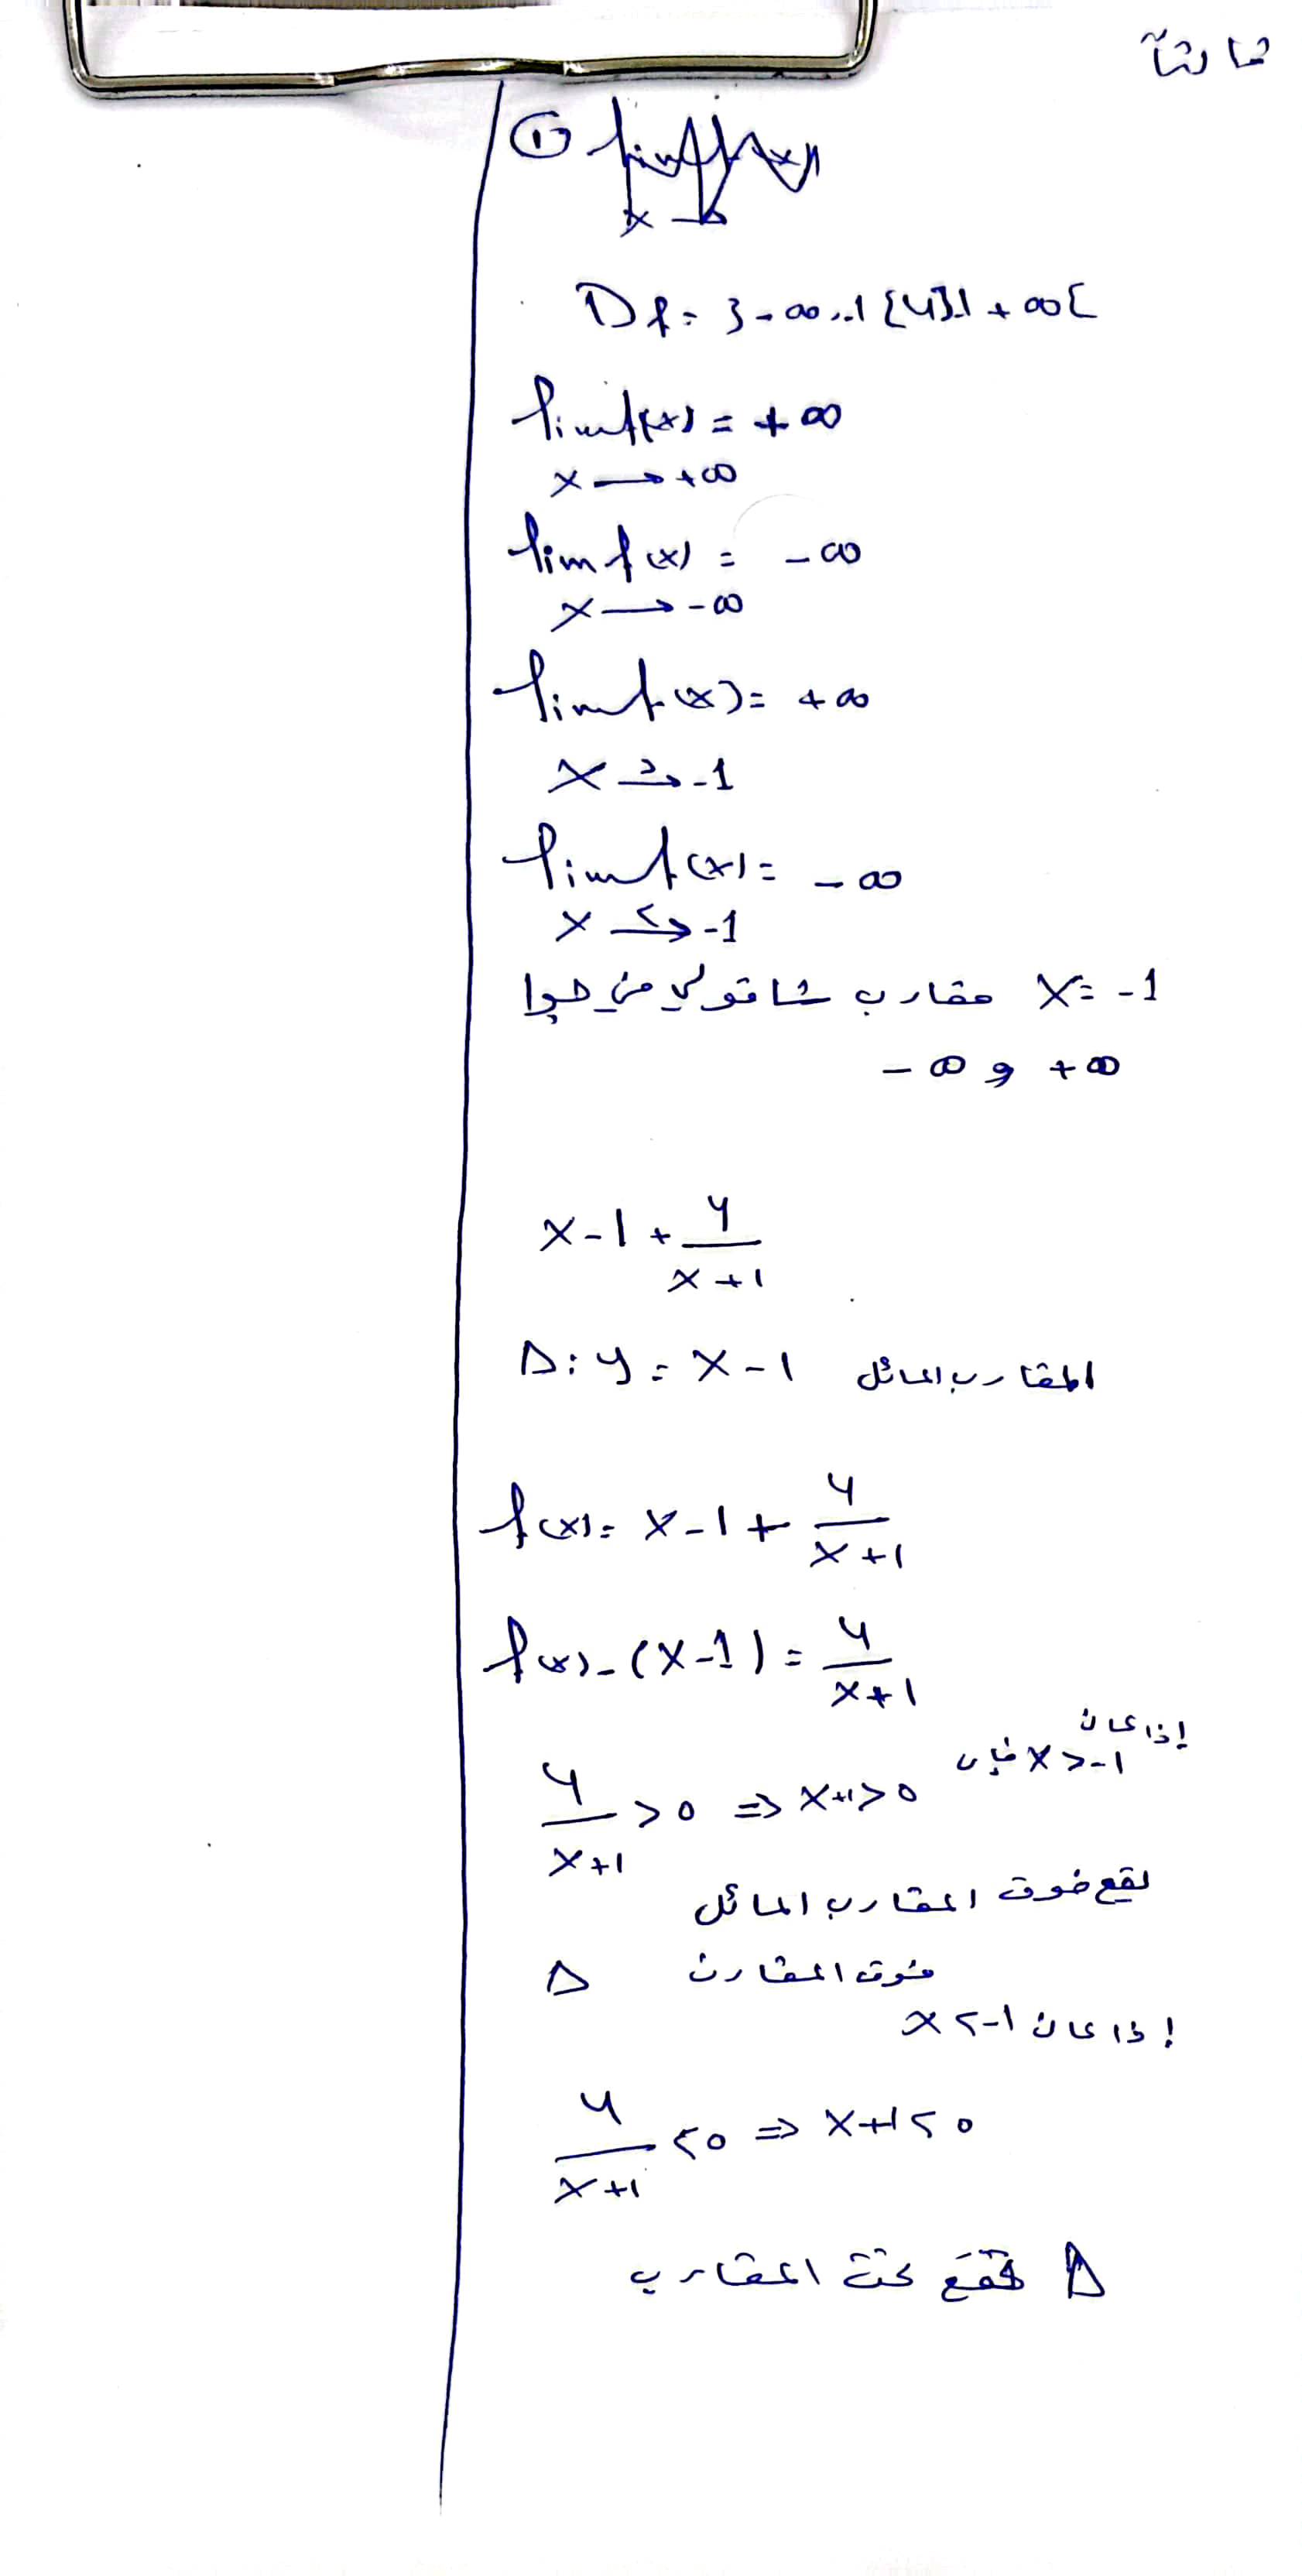 ثالثاً
①
Df = ]-∞..1 {4}.1 +∞[
lim f(x) = +∞
x → +∞
lim f(x) = -∞
x → -∞
lim f(x) = +∞
x >→ -1
lim f(x) = -∞
x <→ -1
x = -1 مقارب شاقولي من جوا
-∞ و +∞
x - 1 + 4/(x+1)
Δ: y = x - 1 المقارب المائل
f(x) = x - 1 + 4/(x+1)
f(x) - (x - 1) = 4/(x+1)
إذا كان
x > -1 فإن
4/(x+1) > 0 ⇒ x+1 > 0
يقع فوق المقارب المائل
فوق المقارب Δ
إذا كان x < -1
4/(x+1) < 0 ⇒ x+1 < 0
تحت المقارب Δ